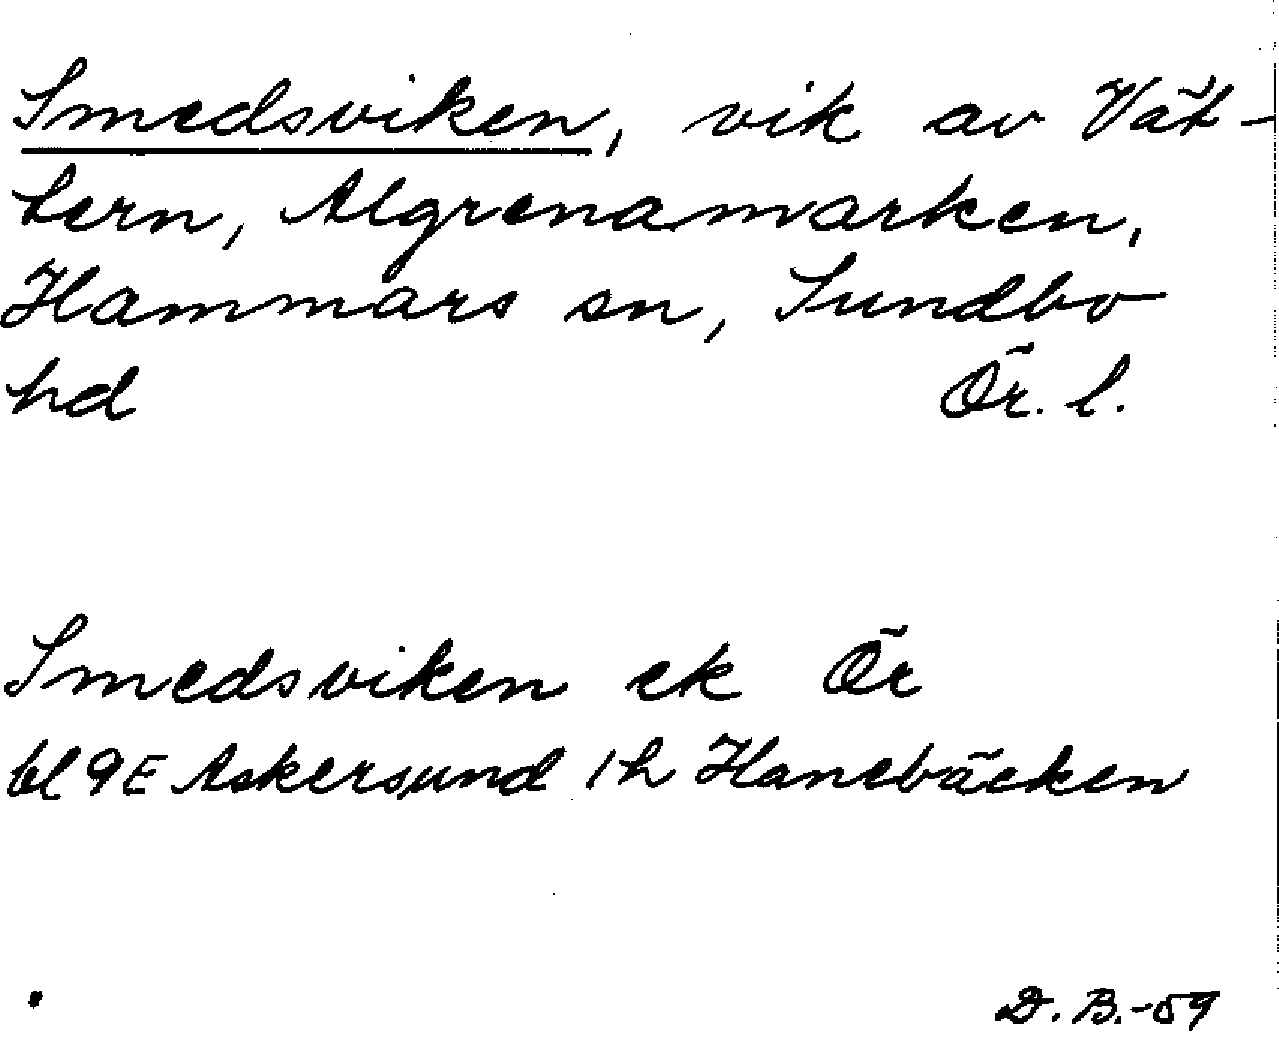 Smedsviken, vik av Vät-
tern, Algrenamarken,
Hammars sn, Sundbo
hd Ör. l.
Smedsviken ek Ör
bl 9E Askersund 1h Hanebäcken
D. B. -59